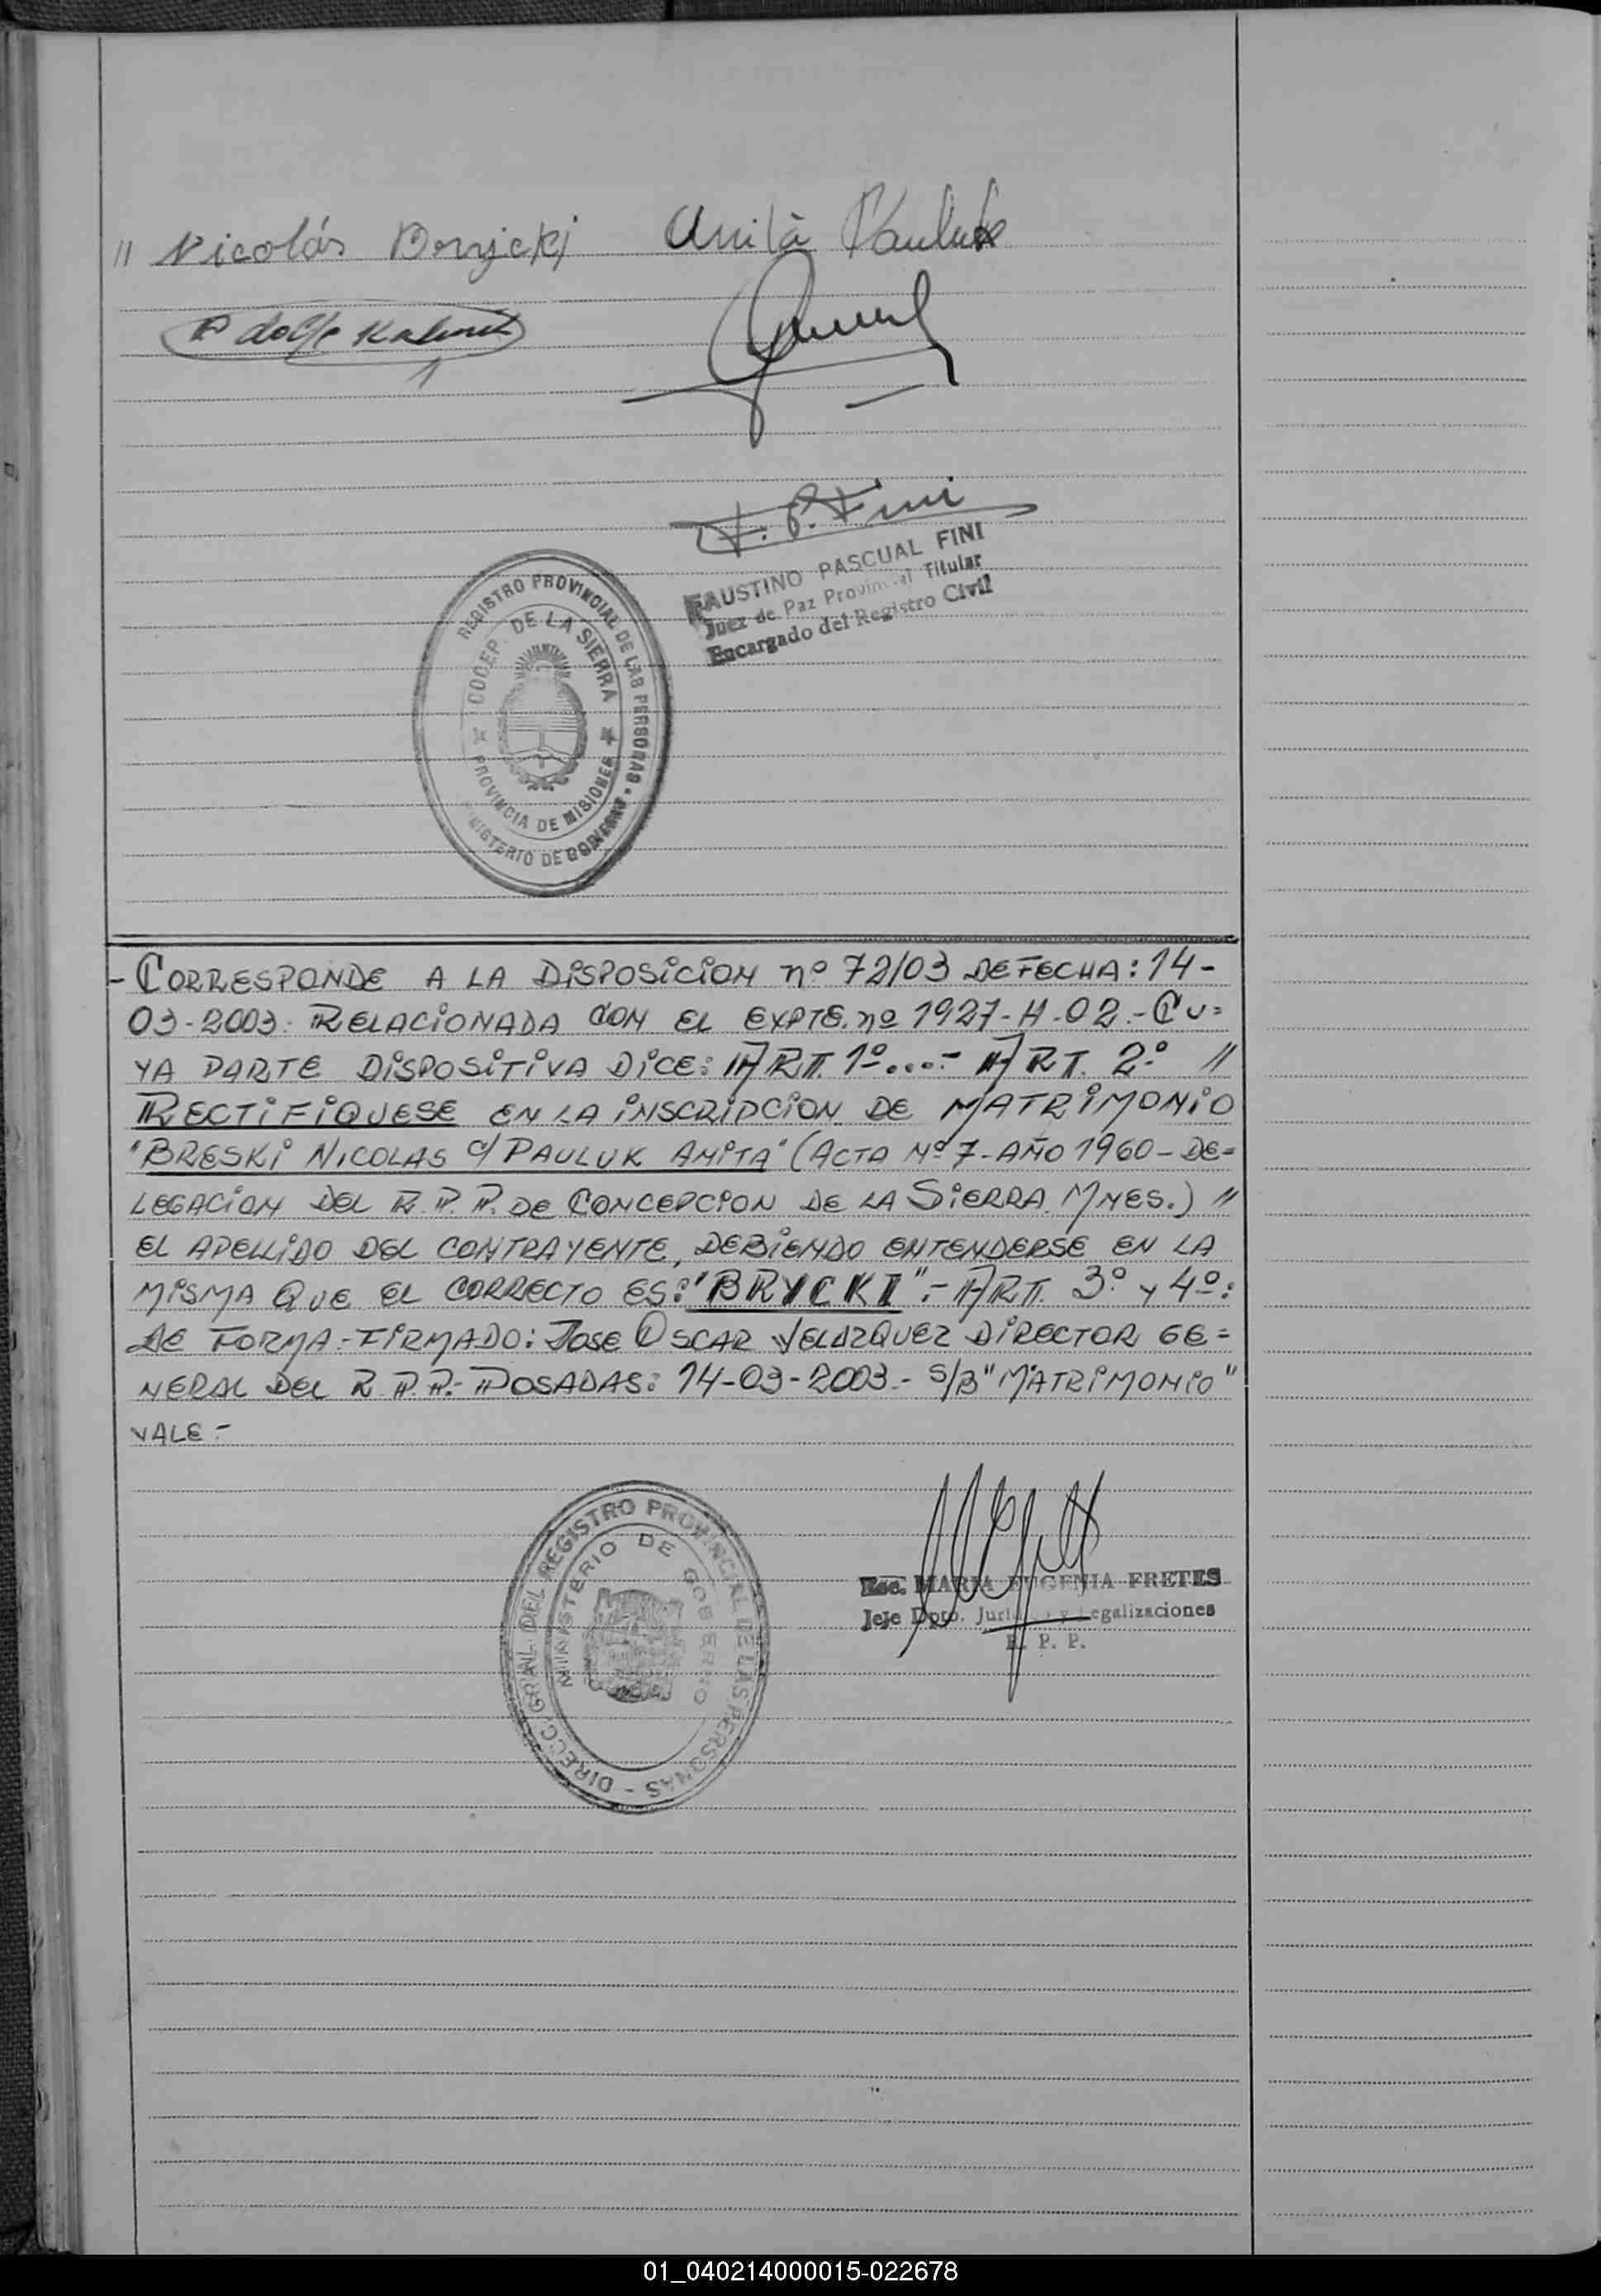 " Nicolás Brycki Anita Pauluk
Adolfo
F. P. Fini
FAUSTINO PASCUAL FINI
Juez de Paz Provincial Titular
Encargado del Registro Civil
REGISTRO PROVINCIAL DE LAS PERSONAS * MINISTERIO DE GOBIERNO
COCEP. DE LA SIERRA * PROVINCIA DE MISIONES *
- CORRESPONDE A LA DISPOSICION nº 72/03 DE FECHA: 14-
03-2003: RELACIONADA CON EL EXPTE. nº 1927-H-02.- CU=
YA PARTE DISPOSITIVA DICE: ART. 1º...- ART. 2º "
RECTIFIQUESE EN LA INSCRIPCION DE MATRIMONIO
"BRESKI NICOLAS c/ PAULUK ANITA" (ACTA Nº 7-AÑO 1960-DE=
LEGACION DEL R.P.P. DE CONCEPCION DE LA SIERRA. MNES.) "
EL APELLIDO DEL CONTRAYENTE, DEBIENDO ENTENDERSE EN LA
MISMA QUE EL CORRECTO ES: "BRYCKI".- ART. 3º y 4º:
DE FORMA.-FIRMADO: JOSE OSCAR VELAZQUEZ DIRECTOR GE=
NERAL DEL R.P.P.- POSADAS: 14-03-2003.- S/B "MATRIMONIO"
VALE-
DIRECC. GRAL. DEL REGISTRO PROVINCIAL DE LAS PERSONAS -
MINISTERIO DE GOBIERNO
Esc. MARIA EUGENIA FRETES
Jefe Dpto. Jurid y Legalizaciones
R. P. P.
01_040214000015-022678